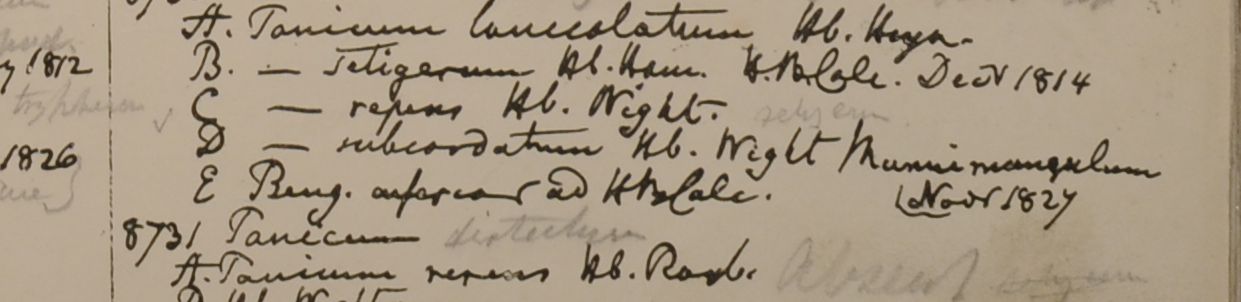 A. Panicum lanceolatum Hb. Heyn.
y 1812 B. — setigerum Hb. Ham. H.B. Calc. Decr 1814
C — repens Hb. Wight.
D — subcordatum Hb. Wight
1826
E Beng. inferior ad H.B. Calc. Novr 1827
8731 Panicum
A. Panicum repens Hb. Roxb. Absent